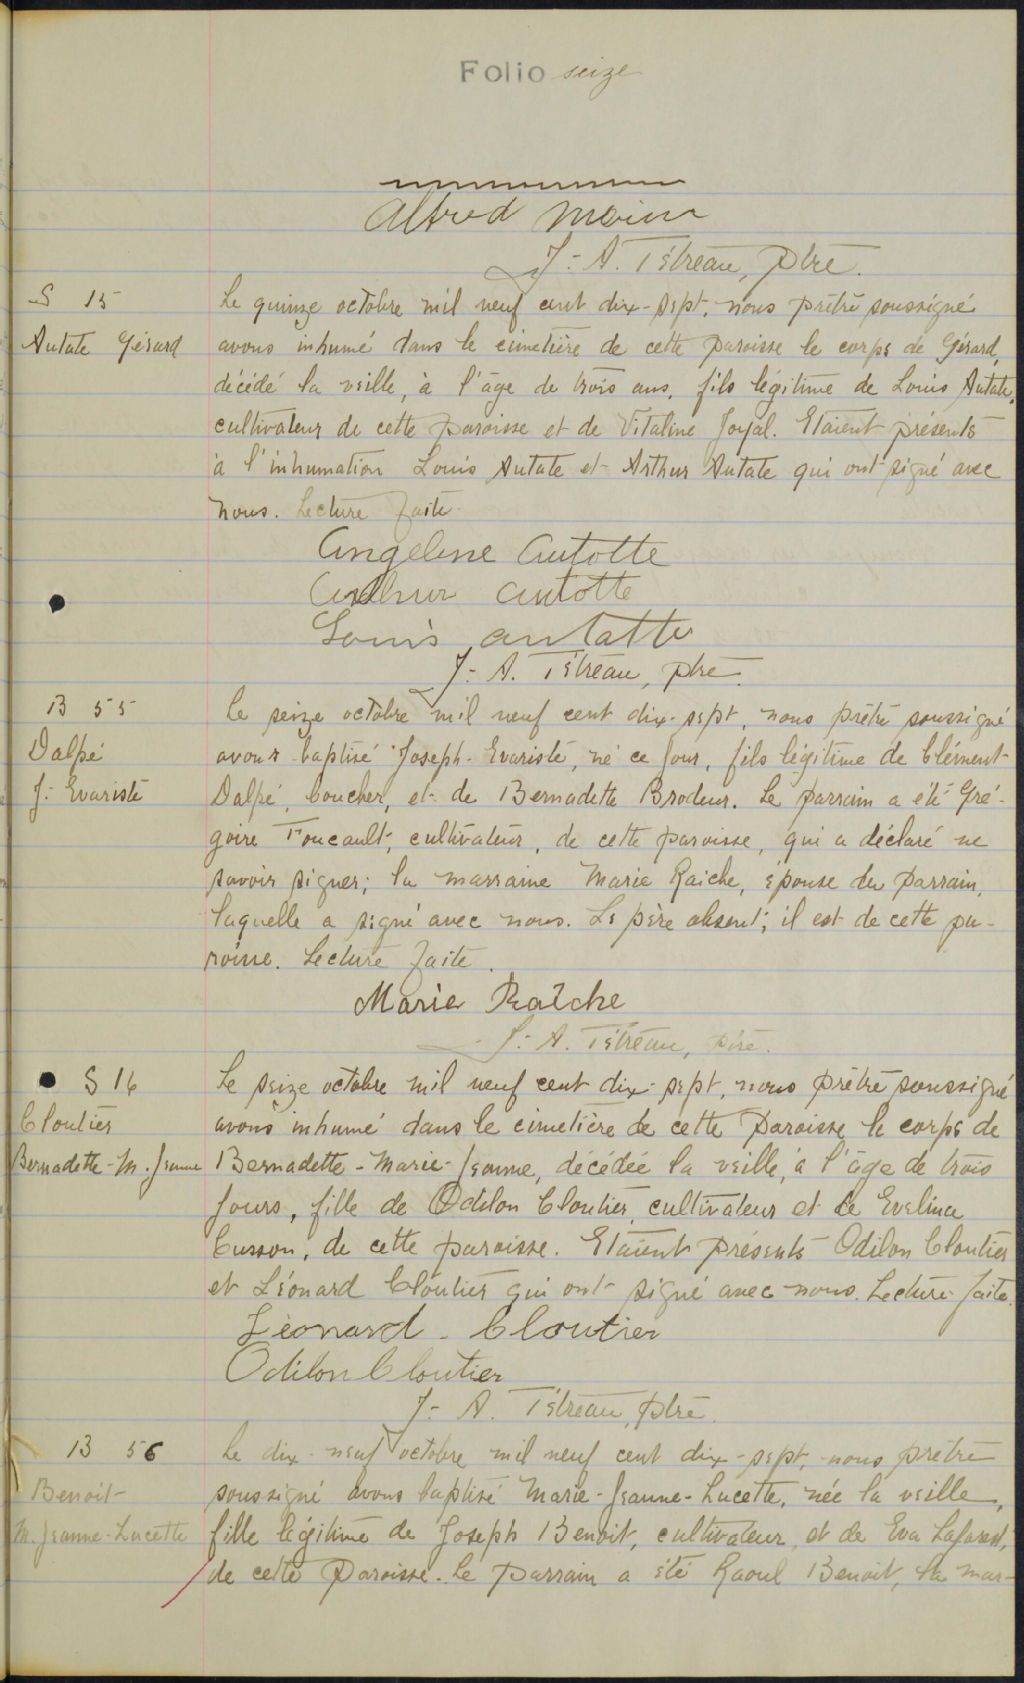 Folio seize
Alfred Morin
J.-A. Tétreau, ptre.
S 15
Autate Gérard
Le quinze octobre mil neuf cent dix-sept, nous prêtre soussigné
avons inhumé dans le cimetière de cette paroisse le corps de Gérard,
décédé la veille, à l'âge de trois ans, fils légitime de Louis Autate,
cultivateur de cette paroisse et de Vitaline Joyal. Etaient présents
à l'inhumation Louis Autate et Arthur Autate qui ont signé avec
nous. Lecture faite.
Angeline Autotte
Arthur Autotte
Louis Autatte
J.-A. Tétreau, ptre.
B 55
Dalpé
J.-Evariste
Le seize octobre mil neuf cent dix-sept, nous prêtre soussigné
avons baptisé Joseph-Evariste, né ce jour, fils légitime de Clément
Dalpé, boucher, et de Bernadette Brodeur. Le parrain a été Gré-
goire Foucault, cultivateur, de cette paroisse, qui a déclaré ne
savoir signer; la marraine Marie Raiche, épouse du parrain,
laquelle a signé avec nous. Le père absent; il est de cette pa-
roisse. Lecture faite.
Marie Raîche
J.-A. Tétreau, ptre.
S 16
Cloutier
Bernadette-M.-Jeanne
Le seize octobre mil neuf cent dix-sept, nous prêtre soussigné
avons inhumé dans le cimetière de cette paroisse le corps de
Bernadette-Marie-Jeanne, décédée la veille, à l'âge de trois
jours, fille de Odilon Cloutier, cultivateur et de Evelina
Cusson, de cette paroisse. Etaient présents Odilon Cloutier
et Léonard Cloutier qui ont signé avec nous. Lecture faite.
Léonard Cloutier
Odilon Cloutier
J.-A. Tétreau, ptre.
B 56
Benoit
M. Jeanne-Lucette
Le dix-neuf octobre mil neuf cent dix-sept, nous prêtre
soussigné avons baptisé Marie-Jeanne-Lucette, née la veille,
fille légitime de Joseph Benoit, cultivateur, et de Eva Laforest,
de cette paroisse. Le parrain a été Raoul Benoit, la mar-